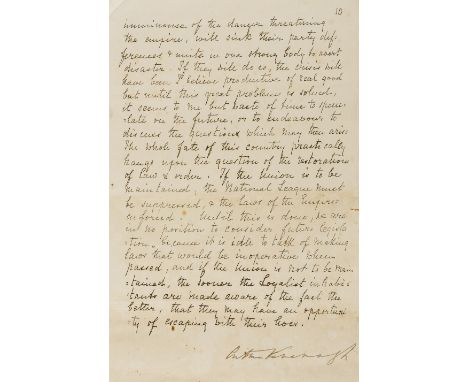 13
imminence of the danger threatening
the empire, will sink their party dif-
ferences & unite in one strong body to avert
disaster. If they will do so, the crisis will
have been I believe productive of real good
but until this great problem is solved,
it seems to me but waste of time to specu-
late on the future, or to endeavour to
discuss the questions which may then arise
The whole fate of this country practically
hangs upon the question of the restoration
of law & order. If the Union is to be
maintained, the National League must
be suppressed, & the laws of the Empire
enforced. Until this is done, we are
in no position to consider future legisla-
tion, because it is idle to talk of making
laws that would be inoperative when
passed, and if the Union is not to be main-
tained, the sooner the Loyalist inhabi-
tants are made aware of the fact the
better, that they may have an opportuni-
ty of escaping with their lives.
Arthur Kavanagh